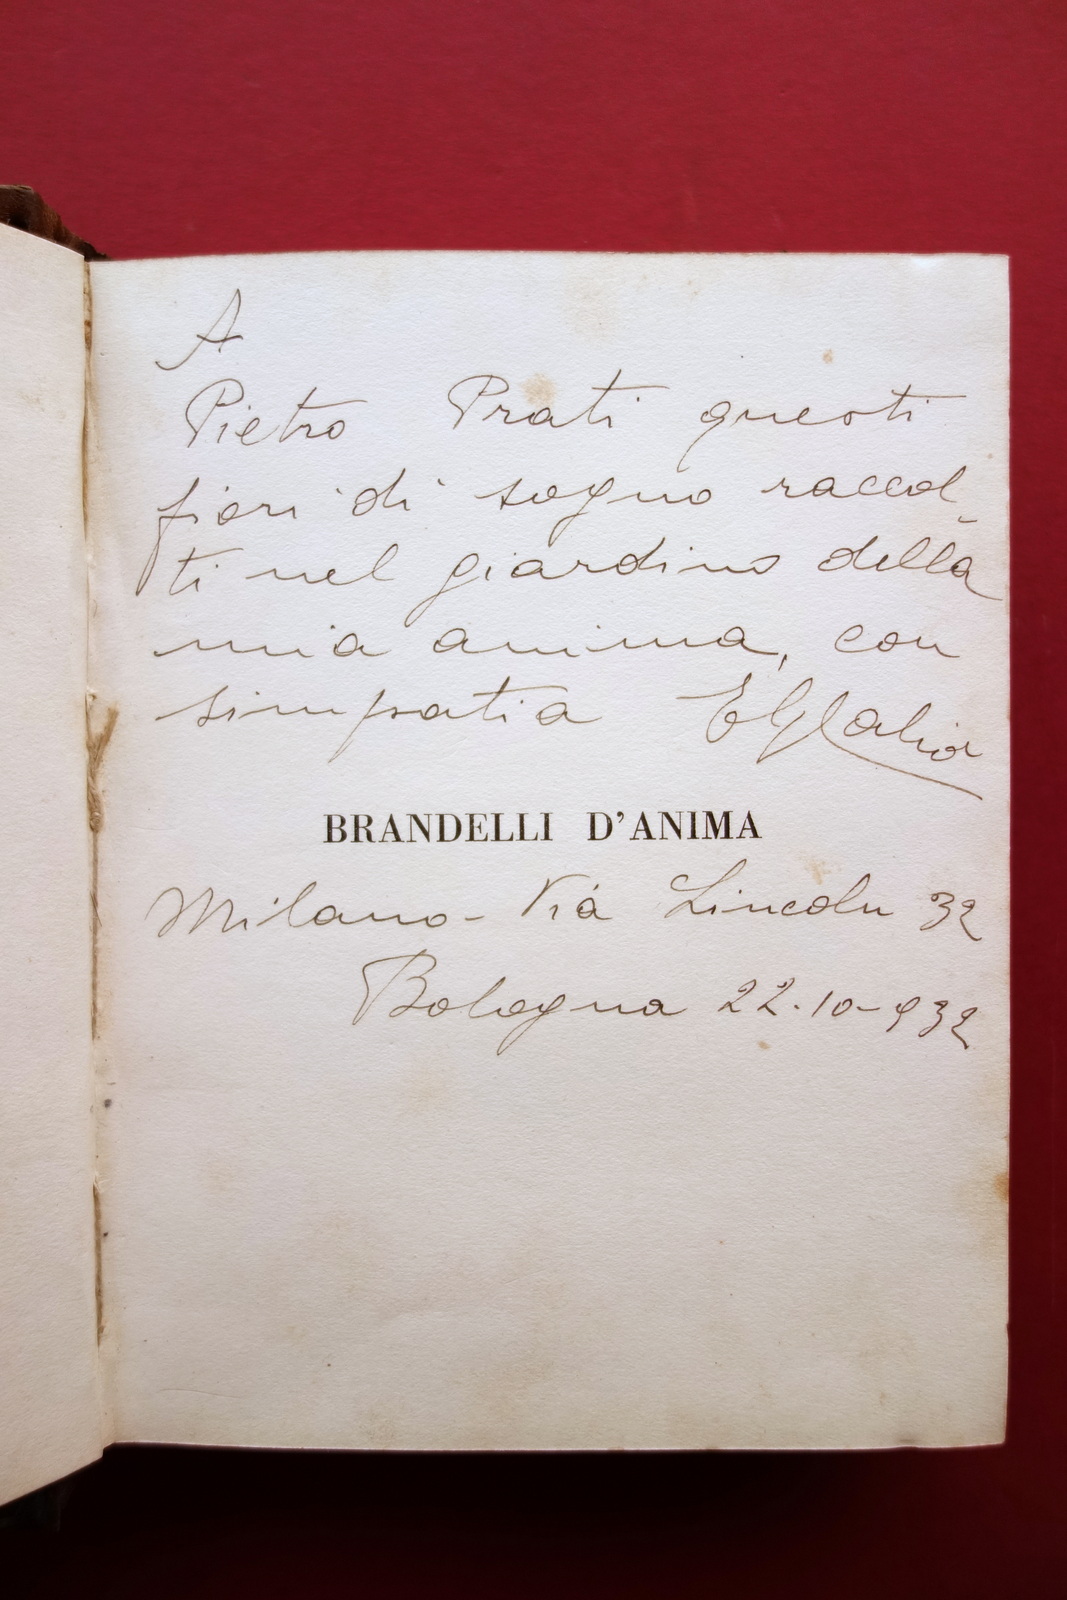 A
Pietro Prati questi
fiori di sogno raccol-
ti nel giardino della
mia anima, con
simpatia
BRANDELLI D'ANIMA
Milano - Via Lincoln 32
Bologna 22.10-932